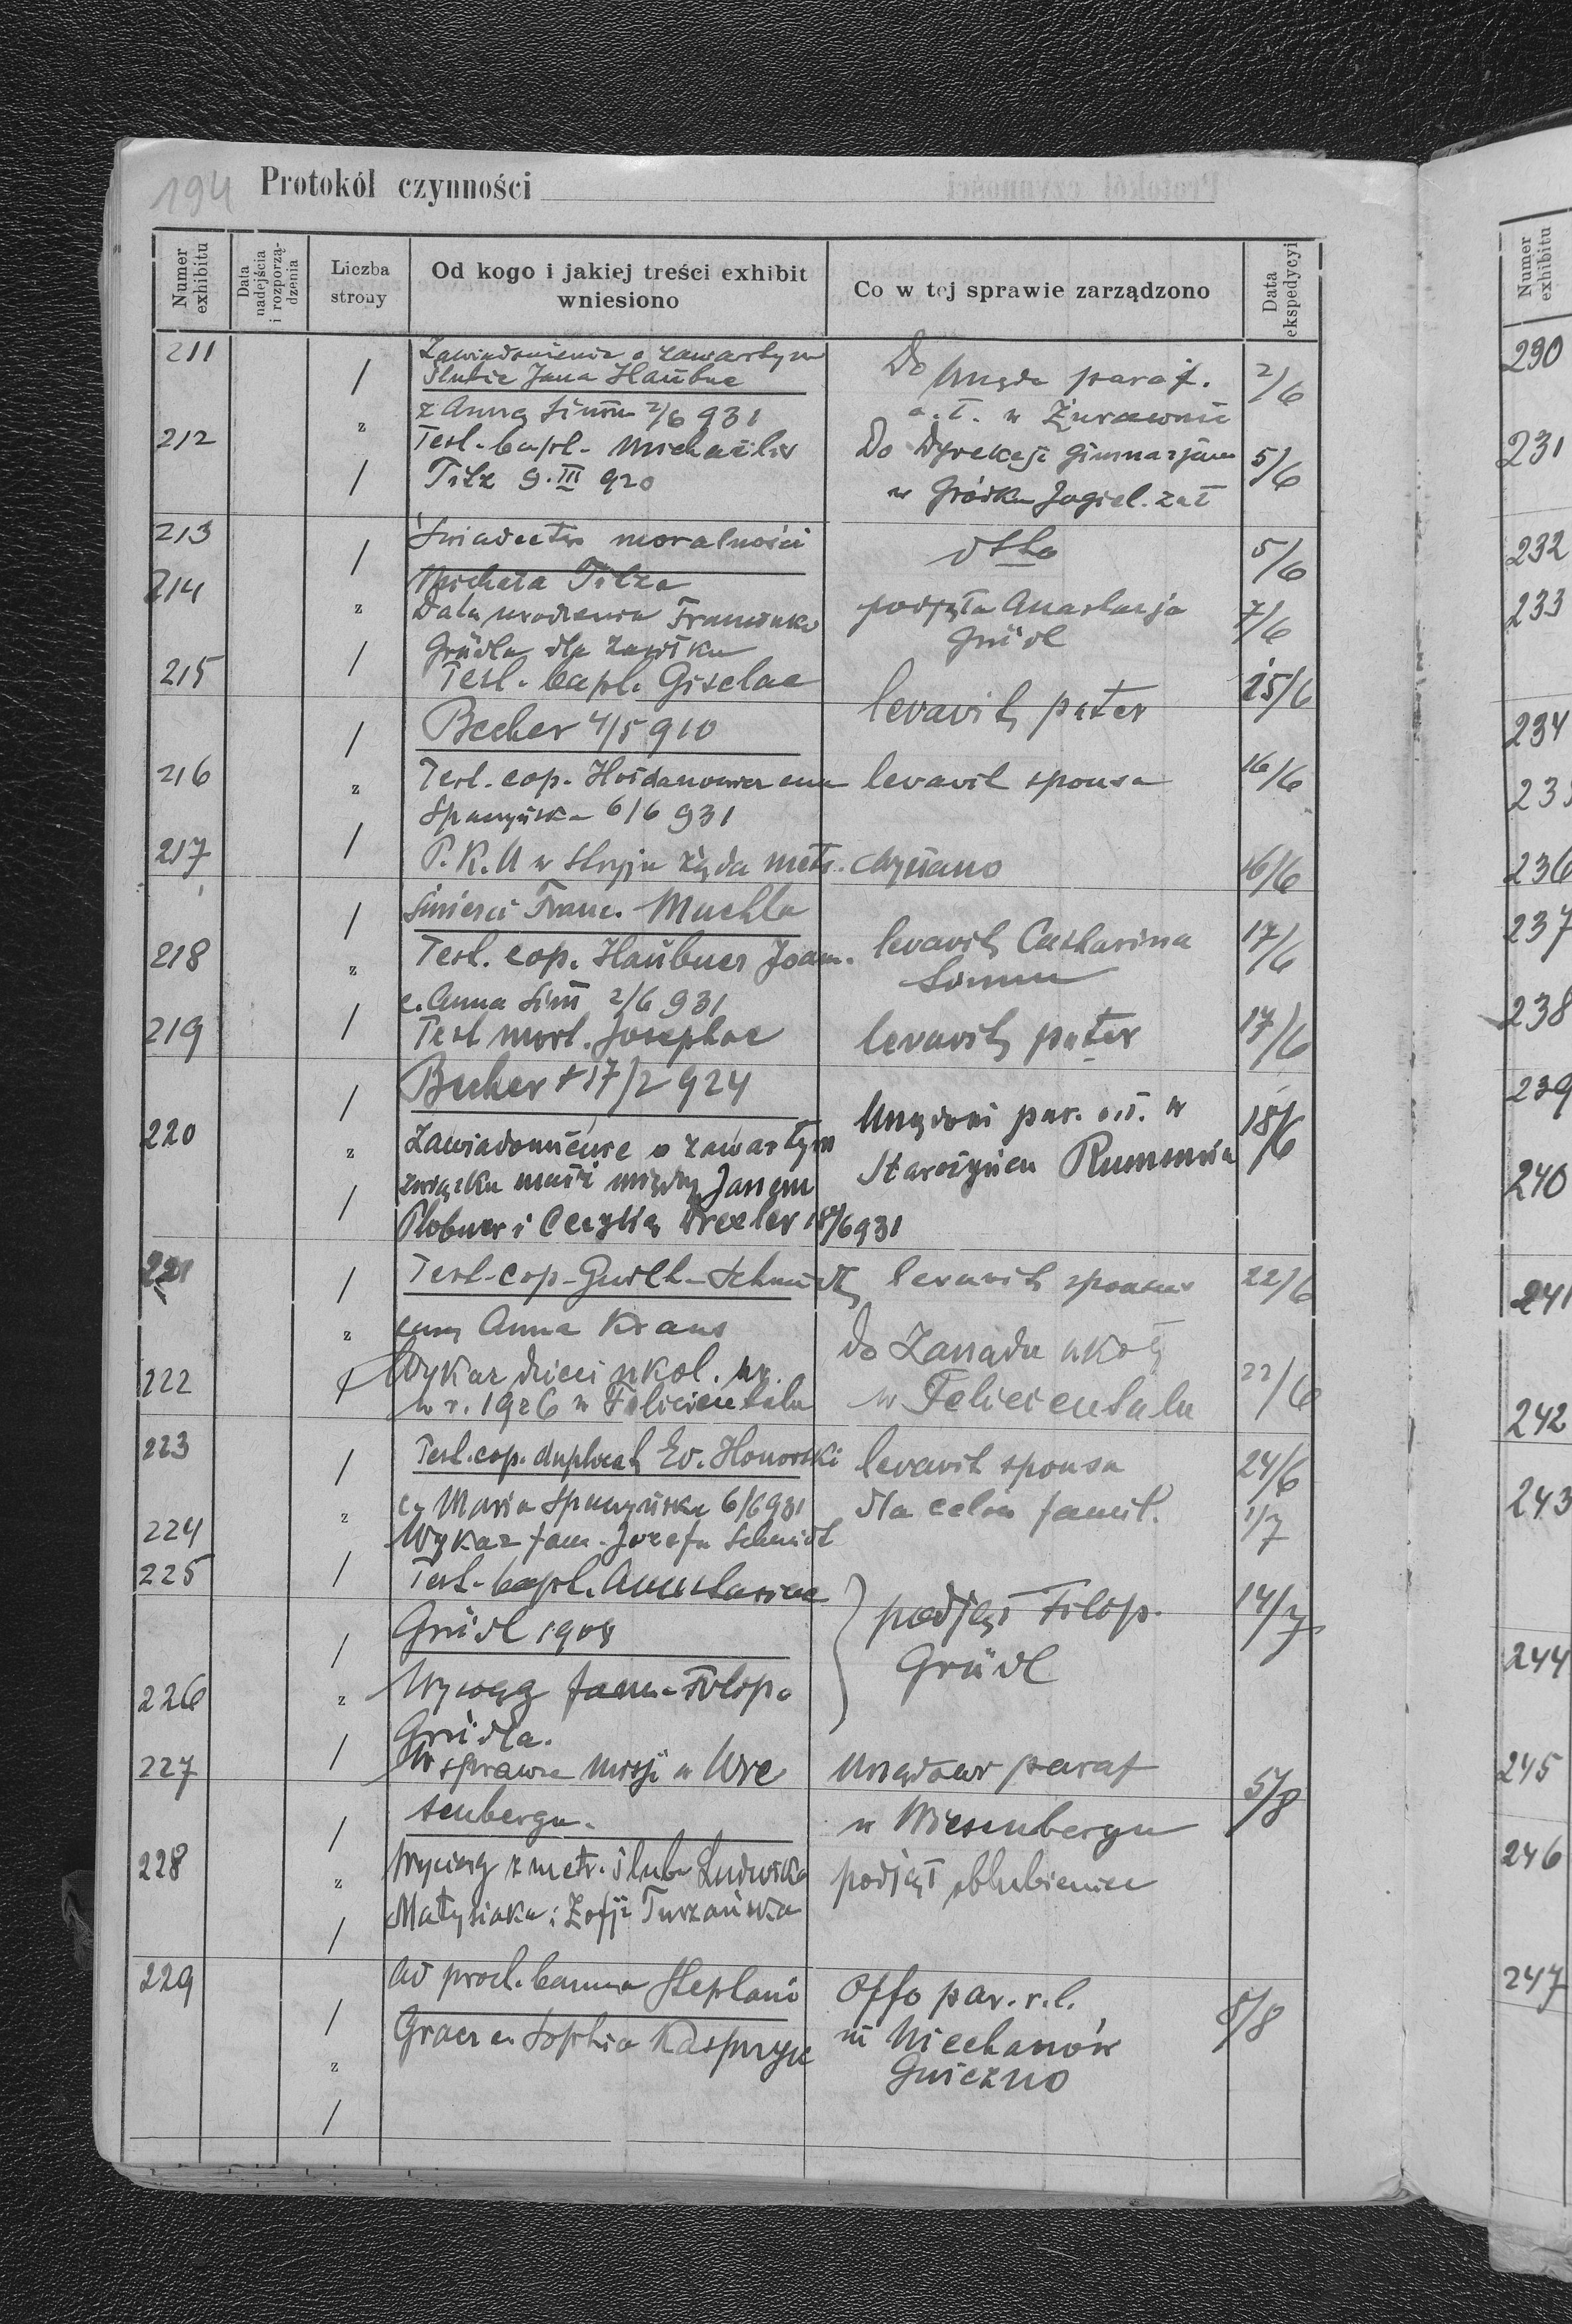 194 Protokół czynności
Numer exhibitu
Data nadejścia i rozporzą-dzenia
Liczba strony
Od kogo i jakiej treści exhibit wniesiono
Co w tej sprawie zarządzono
Data ekspedycyi
211 / Zawiadomienie o zawartym Do Urzędu paraf. 2/6
Ślubie Jana Haübne
z Anną Simm 2/6 931 w Żurawnie
212 z Test. bapt. Michaëlis Do Dyrekcji Gimnazjum 5/6
/ Tilz 9. III 920 w Gródku Jagiel. zał
213 / Świadectwo moralności dtto 5/6
Michała Tilza
214 z Data urodzenia Franciszka podjęła Anastazja 7/6
/ Grüdla dla Grüdl
215 Test. bapt. Giselae levavit pater 15/6
/ Becher 4/5 910
216 z Test. cop. cum levavit sponsa 16/6
6/6 931
217 / P. K. U w Stryju żąda metr. 16/6
/ śmierci Franc. Muchla
218 z Test. cop. Haübner Joan. levavit Catharina 17/6
c. Anna Sim 2/6 931 Simm
219 / Test mort. Josephae levavit pater 17/6
/ Becher + 17/2 924
220 z Zawiadomienie o zawartym par. w 18/6
związku małż między Janem Rumunia
/ Plobner i Cecylią Drexler 18/6 931
221 / Test. cop. Guilh. Schmidt levavit sponsus 22/6
z cum Anna Kraus
222 / Wykaz dzieci szkol. ur. do Zarządu szkoły 22/6
w r. 1926 w Felicientalu w Felicientalu
223 / Test. cop. duplicat Ed. Honorski levavit sponsa 24/6
z Maria 6/6 931
224 Wykaz fam. Józefa Schmidt dla celów famil. 1/7
225 / Test. bapt. Anastasiae podjął Filip. 14/7
/ Grüdl 1908 Grüdl
226 z Wyciąg fam. Filipa
Grüdla.
227 / W sprawie Misji w Wie Urzędowi paraf 5/8
/ senbergu. w Wiesenbergu
228 z Wyciąg z metr. ślubu Ludwika podjął oblubieniec
/ Matysiaka i Zofji
229 Ad procl. banna Stephani Offo par. r. l. 8/8
/ Gracz c. Sophia Kasprzyk in Niechanów
z Gniezno
/
Numer exhibitu
230
231
232
233
234
235
236
237
238
239
240
241
242
243
244
245
246
247